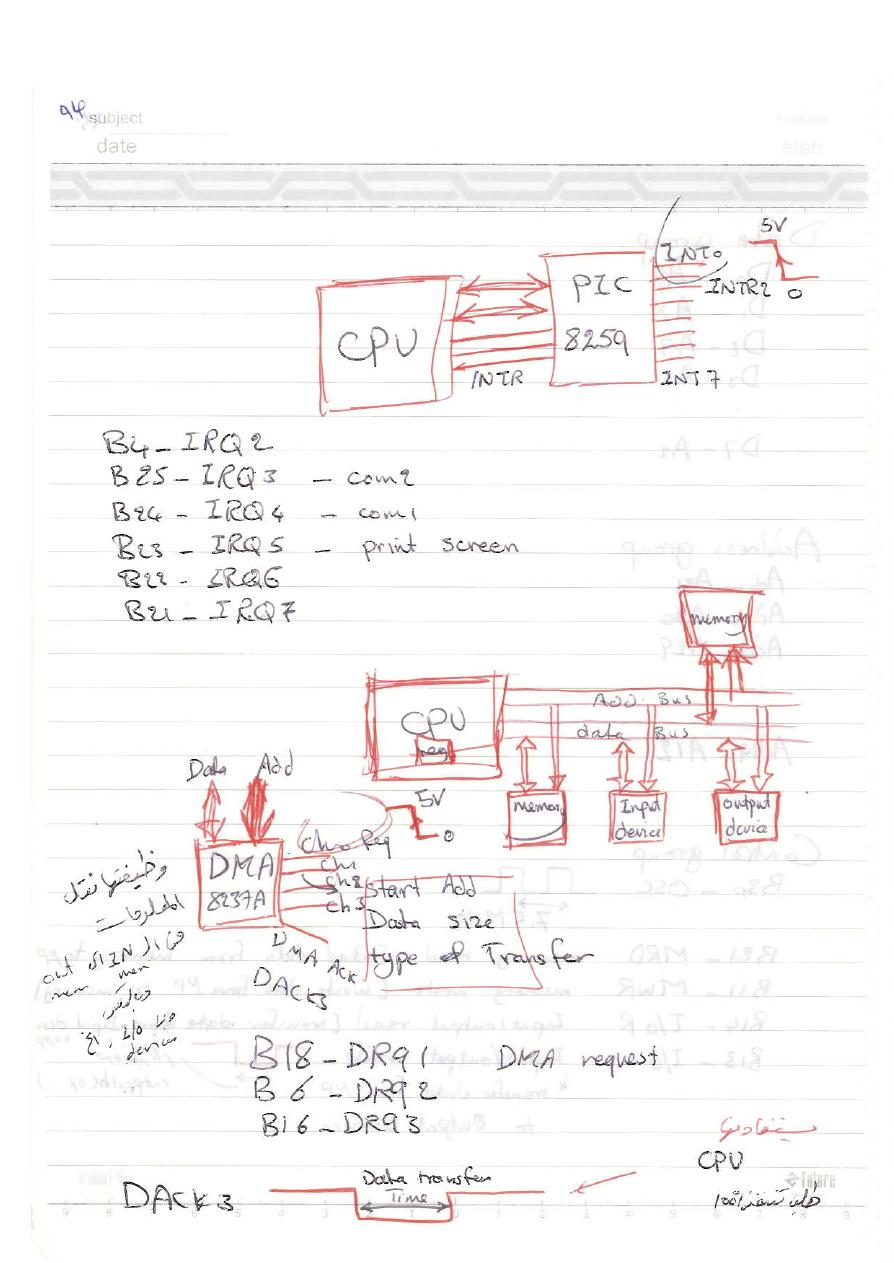 94
subject
date
5V
INT0
INTR2
0
PIC
8259
CPU
INTR
INT 7
B4 - IRQ 2
B25 - IRQ 3 - com2
B24 - IRQ 4 - com1
B23 - IRQ 5 - print screen
B22 - IRQ6
B21 - IRQ 7
memory
CPU
Reg
Add Bus
data Bus
memory
Input device
output device
Data Add
5V
0
DMA
8237A
Ch0 Req
Ch1
Ch2
Ch3
start Add
Data size
type of Transfer
DMA Ack
DACK3
وظيفتها نقل
المعلومات
من الـ IN الى out
mem mem
وبالعكس
I/O
device
B18 - DR91 DMA request
B 6 - DR92
B16 - DR93
CPU
DACK 3
Data transfer
Time
Future